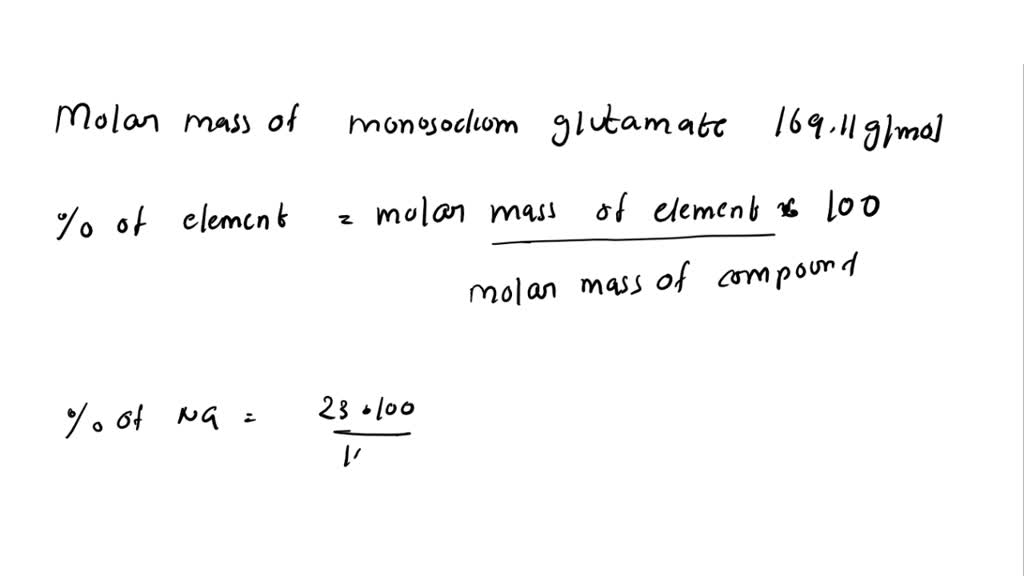 Molar mass of monosodium glutamate 169.11 g/mol
% of element = molar mass of element × 100
molar mass of compound
% of Na = 23 • 100
1